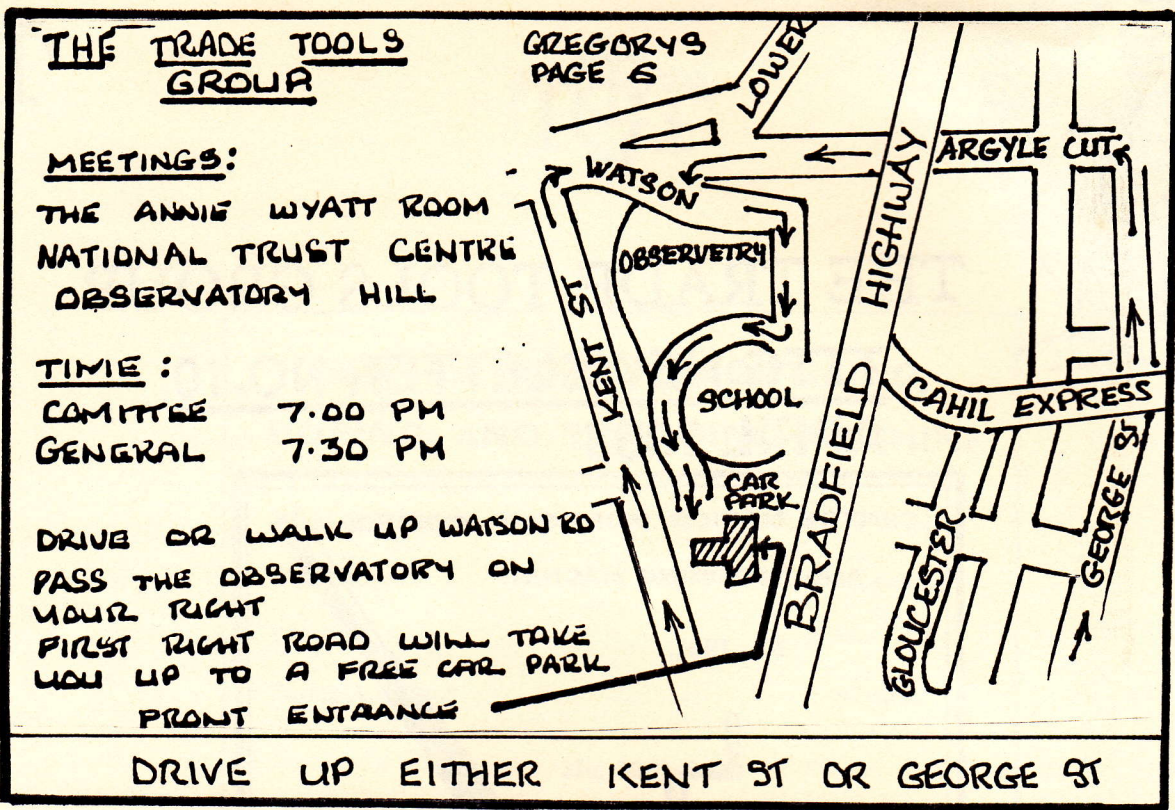 THE TRADE TOOLS
GROUP
GREGORYS
PAGE 6
MEETINGS:
THE ANNIE WYATT ROOM
NATIONAL TRUST CENTRE
OBSERVATORY HILL
TIME:
COMITTEE 7.00 PM
GENERAL 7.30 PM
DRIVE OR WALK UP WATSON RD
PASS THE OBSERVATORY ON
YOUR RIGHT
FIRST RIGHT ROAD WILL TAKE
YOU UP TO A FREE CAR PARK
FRONT ENTRANCE
LOWER
ARGYLE CUT
WATSON
OBSERVETRY
KENT ST
SCHOOL
CAR
PARK
BRADFIELD HIGHWAY
CAHIL EXPRESS
GLOUCESTER
GEORGE ST
DRIVE UP EITHER KENT ST OR GEORGE ST